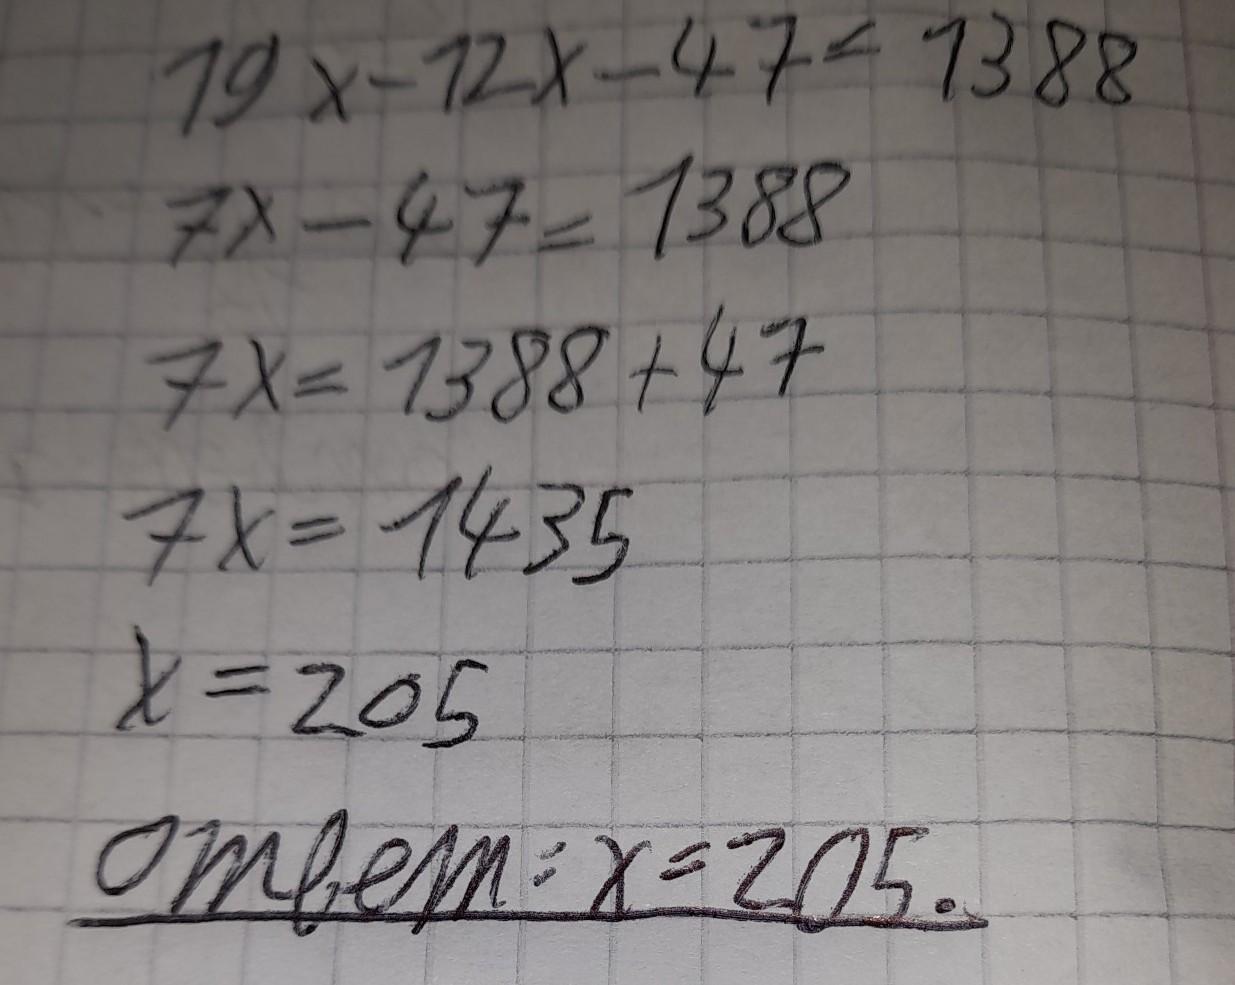 19x-12x-47=1388
7x-47=1388
7x=1388+47
7x=1435
x=205
ответ: x=205.